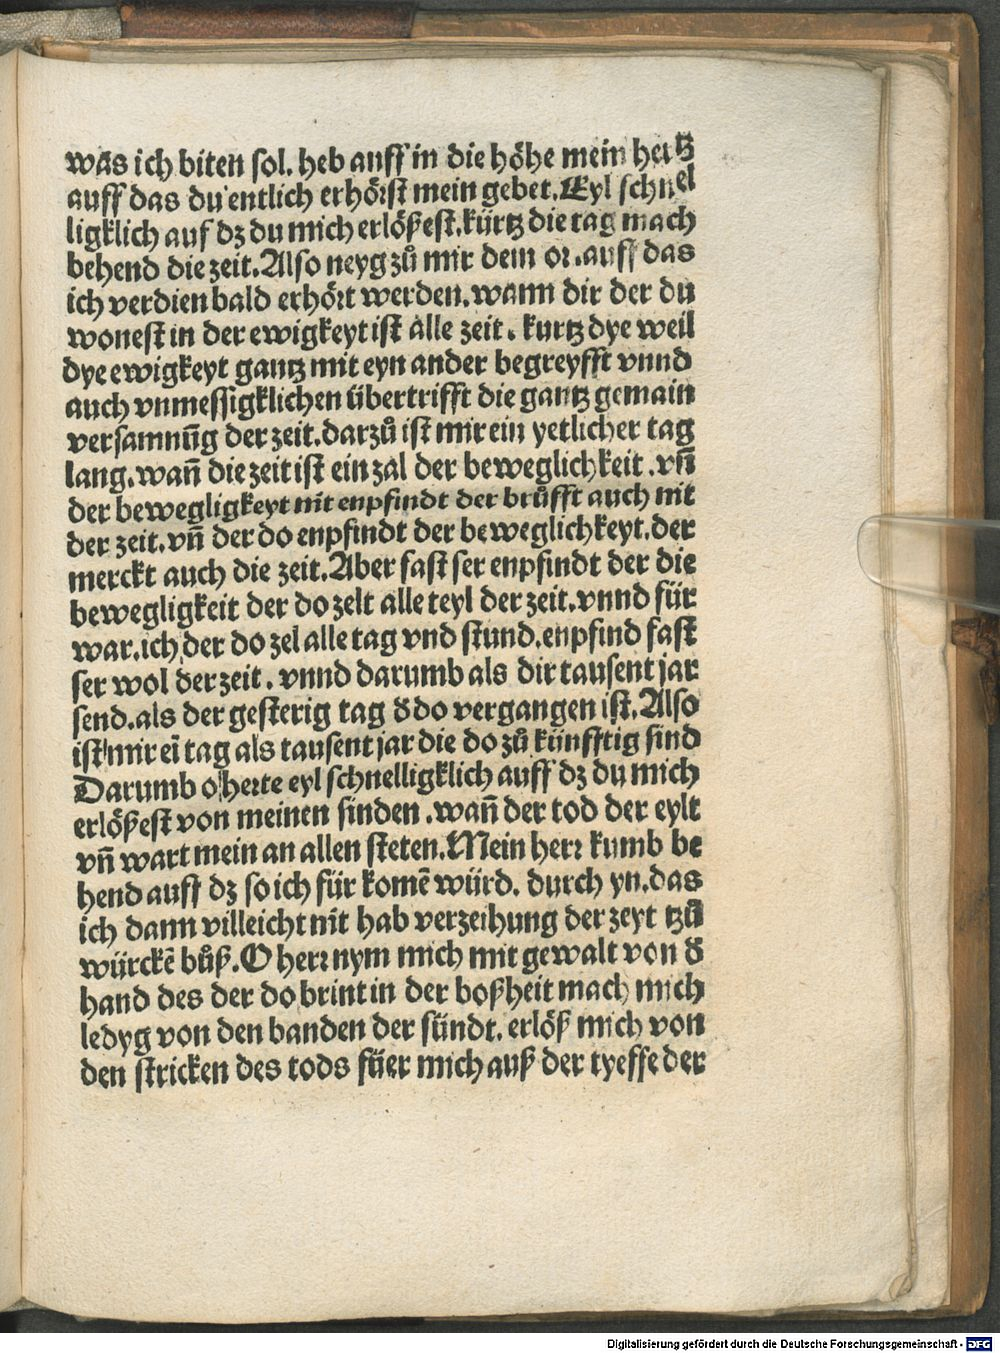 was ich biten sol. heb auff in die höhe mein hertz
auff das du entlich erhörst mein gebet. Eyl schnel
ligklich auf dz du mich erlößest. kürtz die tag mach
behend die zeit. Also neyg zů mir dein or. auff das
ich verdien bald erhört werden. wann dir der du
wonest in der ewigkeyt ist alle zeit. kurtz dye weil
dye ewigkeyt gantz mit eyn ander begreyfft vnnd
auch vnmessigklichen übertrifft die gantz gemain
versamnũg der zeit. darzů ist mir ein yetlicher tag
lang. wañ die zeit ist ein zal der beweglichkeit. vñ
der bewegligkeyt nit enpfindt der brůfft auch nit
der zeit. vñ der do enpfindt der beweglichkeyt. der
merckt auch die zeit. Aber fast ser enpfindt der die
bewegligkeit der do zelt alle teyl der zeit. vnnd für
war. ich der do zel alle tag vnd stund. enpfind fast
ser wol der zeit. vnnd darumb als dir tausent jar
send. als der gesterig tag d̕ do vergangen ist. Also
ist mir eī tag als tausent jar die do zů künfftig sind
Darumb o herre eyl schnelligklich auff dz du mich
erlößest von meinen sinden. wañ der tod der eylt
vñ wart mein an allen steten. Mein herr kumb be
hend auff dz so ich für komē würd. durch yn. das
ich dann villeicht nit hab verzeihung der zeyt tzů
würckē bůß. O herr nym mich mit gewalt von d̕
hand des der do brint in der boßheit mach mich
ledyg von den banden der sündt. erlöß mich von
den stricken des tods füer mich auß der tyeffe der
Digitalisierung gefördert durch die Deutsche Forschungsgemeinschaft - DFG